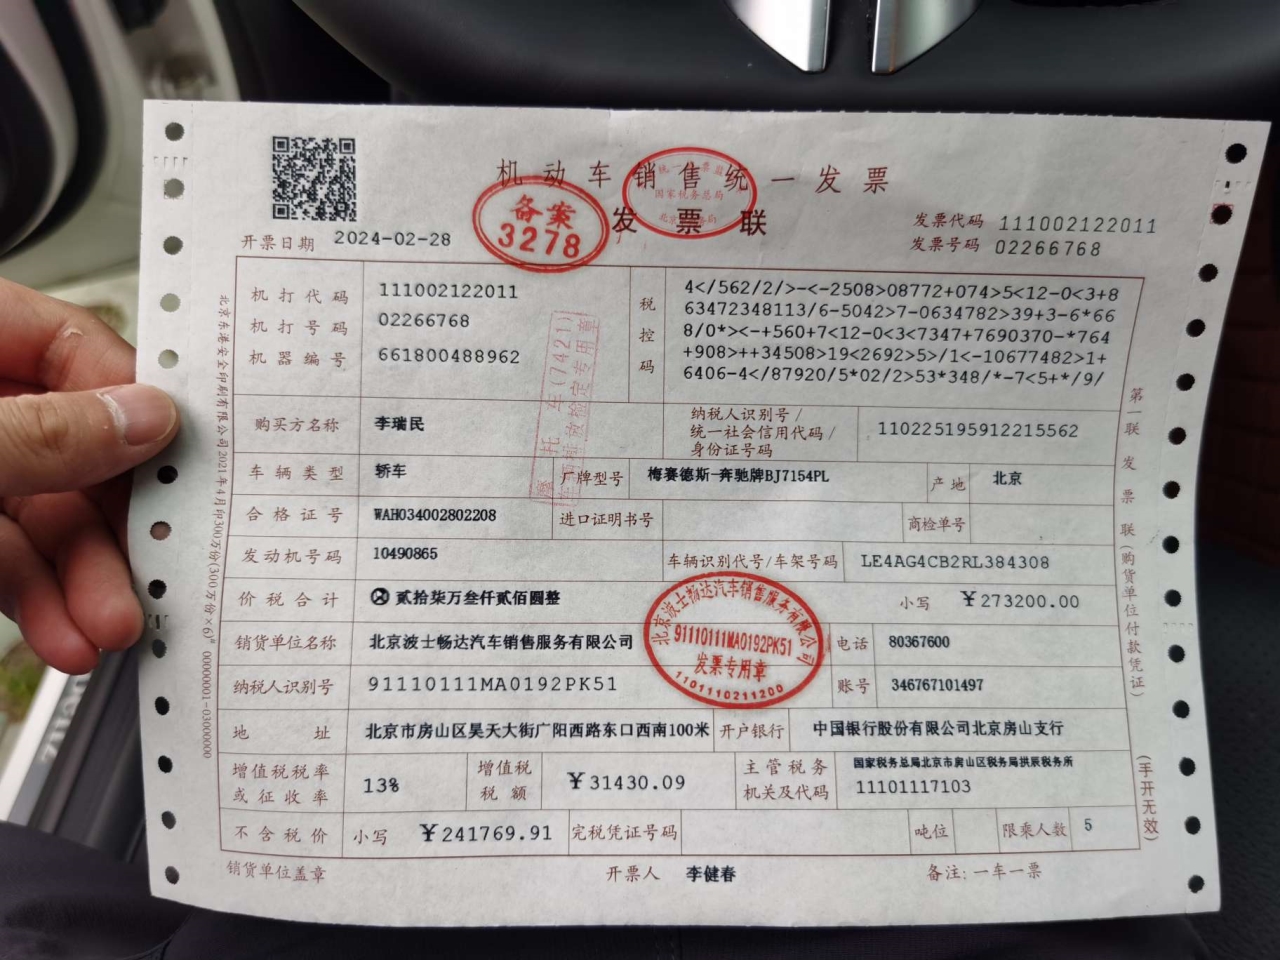 机动车销售统一发票
发票联
备案
3278
国家税务总局
开票日期 2024-02-28
发票代码 111002122011
发票号码 02266768
机打代码 111002122011
机打号码 02266768
机器编号 661800488962
税控码
4</562/2/>-<-2508>08772+074>5<12-0<3+8
63472348113/6-5042>7-0634782>39+3-6*66
8/0*><-+560+7<12-0<3<7347+7690370-*764
+908>++34508>19<2692>5>/1<-10677482>1+
6406-4</87920/5*02/2>53*348/*-7<5+*/9/
购买方名称 李瑞民 纳税人识别号/统一社会信用代码/身份证号码 110225195912215562
车辆类型 轿车 厂牌型号 梅赛德斯-奔驰牌BJ7154PL 产地 北京
合格证号 WAH034002802208 进口证明书号 商检单号
发动机号码 10490865 车辆识别代号/车架号码 LE4AG4CB2RL384308
价税合计 ⊗ 贰拾柒万叁仟贰佰圆整 小写 ￥273200.00
销货单位名称 北京波士畅达汽车销售服务有限公司 电话 80367600
纳税人识别号 91110111MA0192PK51 账号 346767101497
地址 北京市房山区昊天大街广阳西路东口西南100米 开户银行 中国银行股份有限公司北京房山支行
增值税税率或征收率 13% 增值税税额 ￥31430.09 主管税务机关及代码 国家税务总局北京市房山区税务局拱辰税务所
11101117103
不含税价 小写 ￥241769.91 完税凭证号码 吨位 限乘人数 5
销货单位盖章 开票人 李健春 备注:一车一票
北京波士畅达汽车销售服务有限公司
91110111MA0192PK51
发票专用章
1101110211200
第一联 发票联(购货单位付款凭证)
(手开无效)
北京东港安全印刷有限公司2021年4月印300万份(300万份×6)# 00000001-03000000